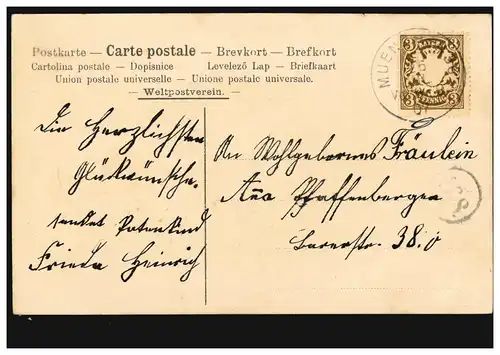 Postkarte — Carte postale — Brevkort — Brefkort
Cartolina postale — Dopisnice Levelező Lap — Briefkaart
Union postale universelle — Unione postale universale.
— Weltpostverein. —
BAYERN
3 3
PFENNIG
MUEN
Die Herzlichsten
Glückwünsche.
sendet Patenkind
Frieda Heinrich
An Wohlgebornes Fräulein
Anna Pfaffenberger
38.0